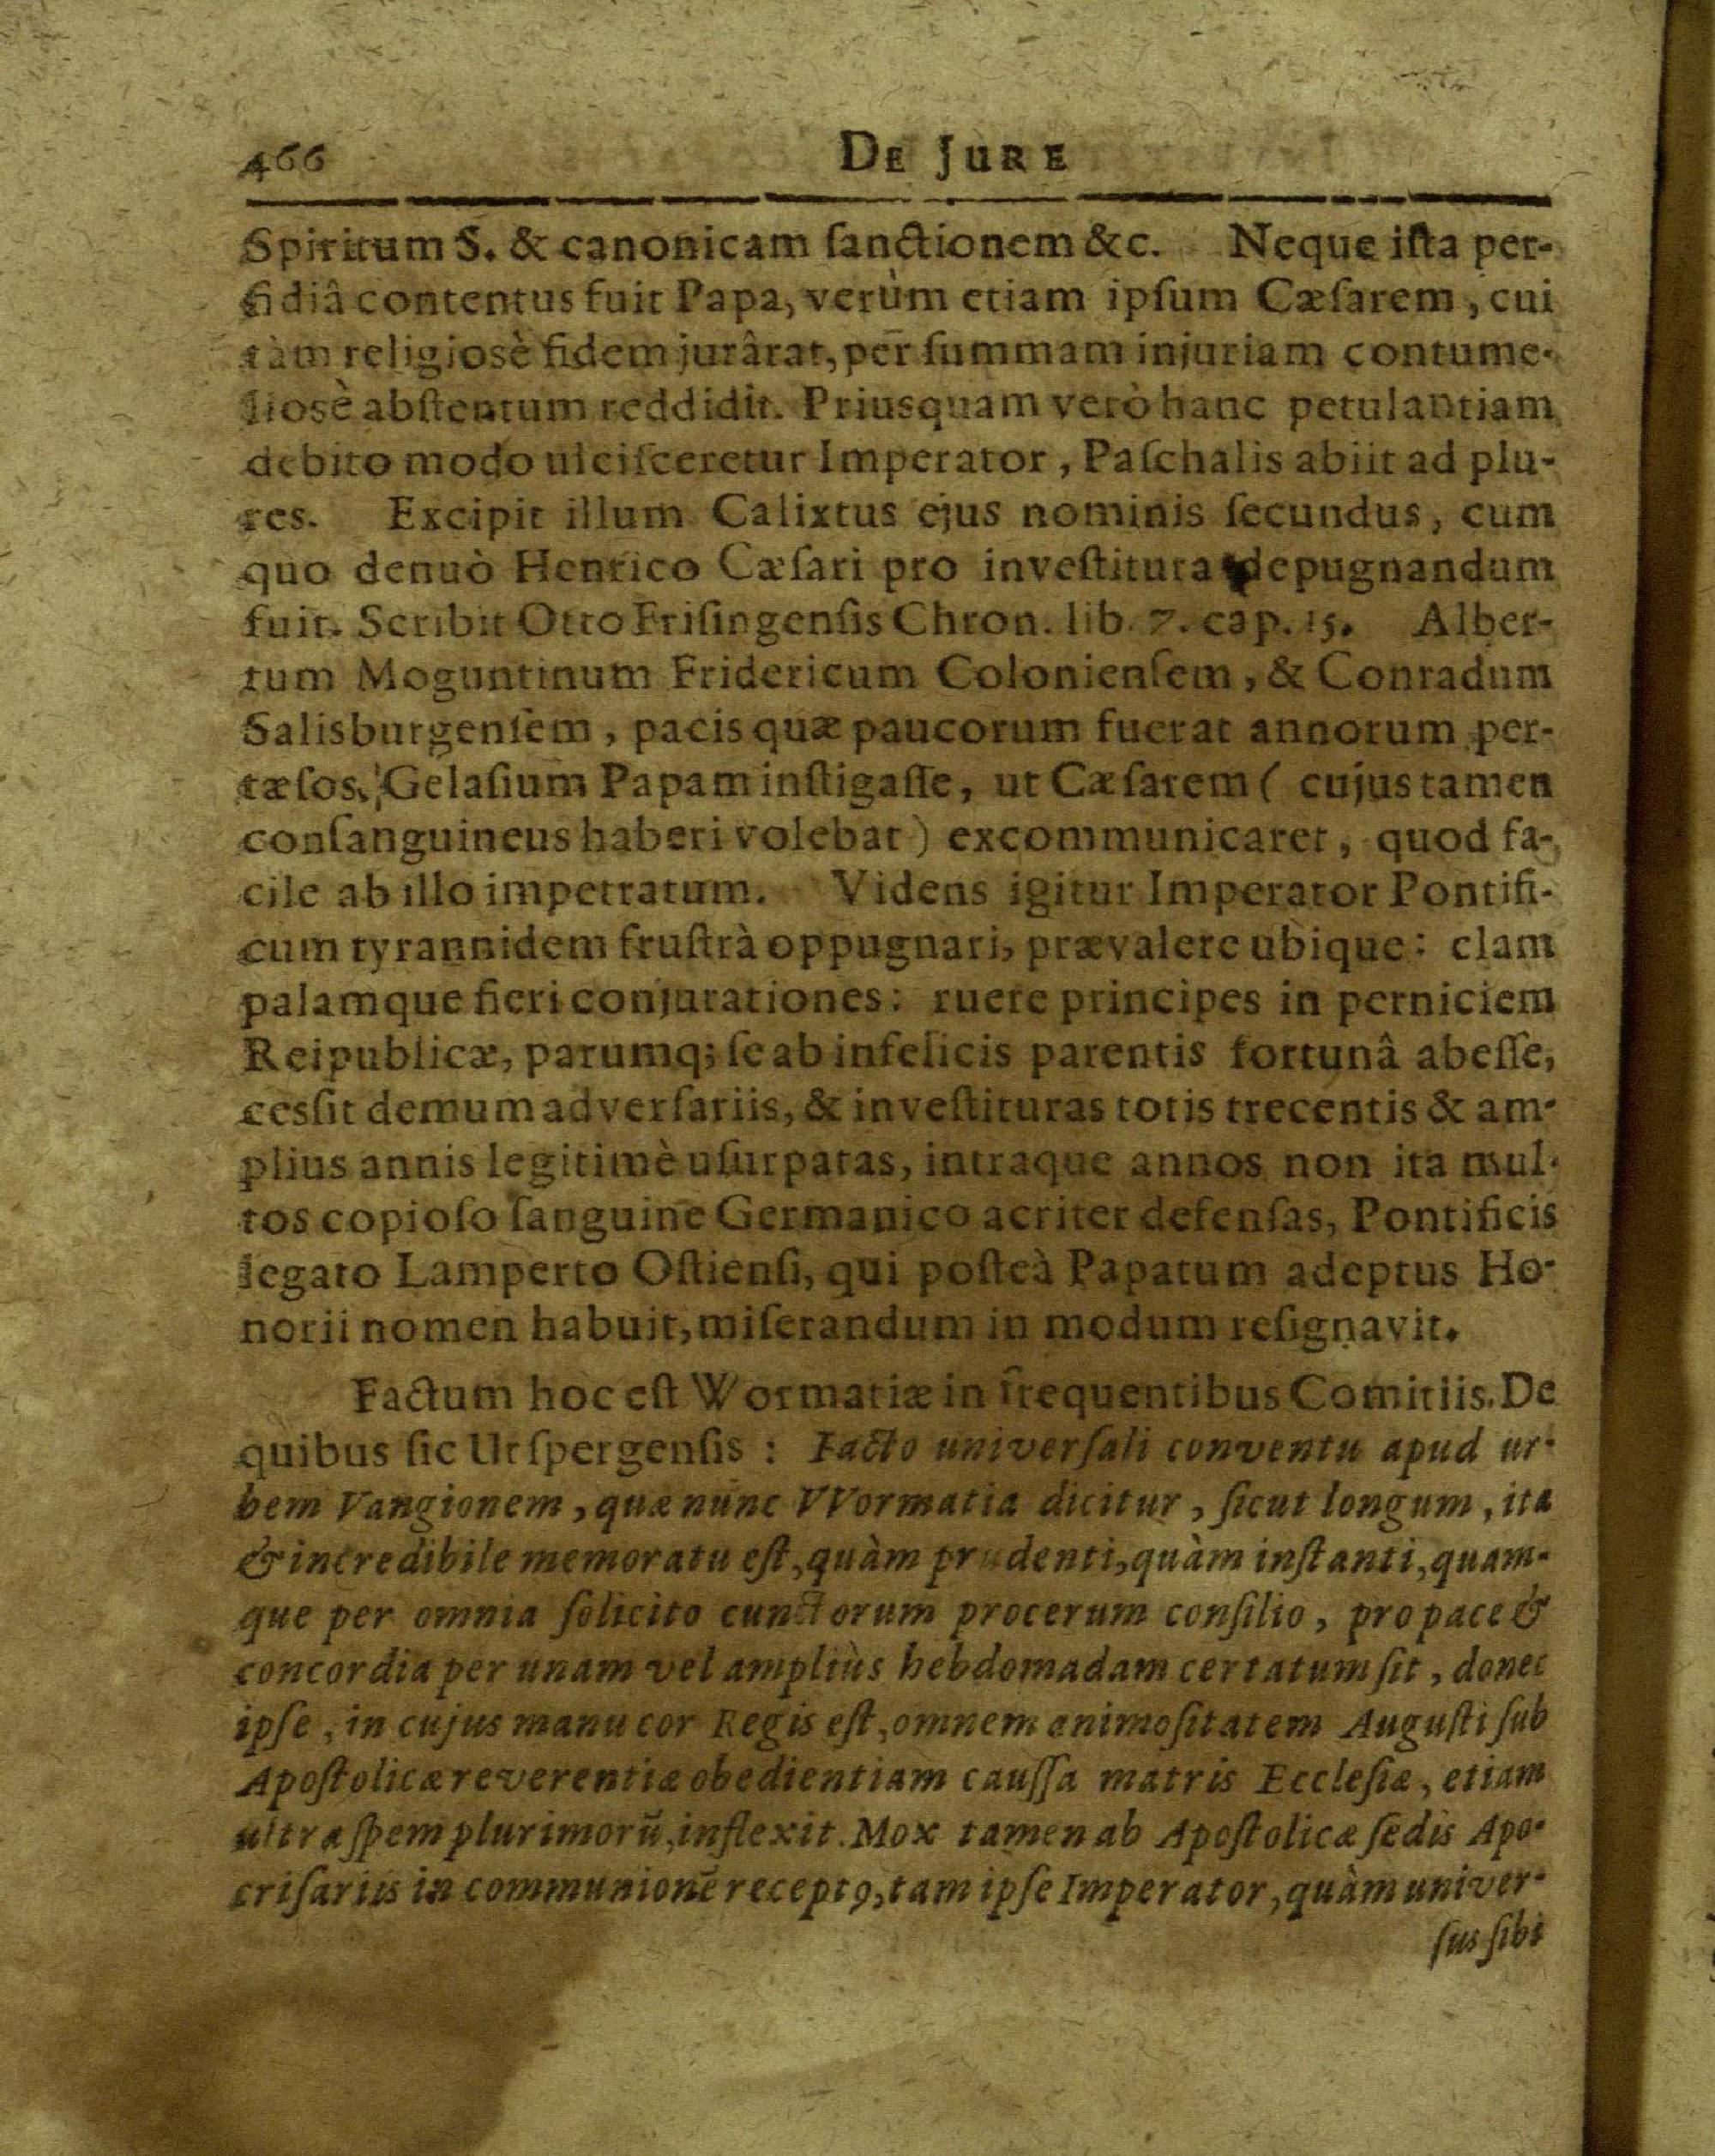 466 DE JURE
Spiritum S. & canonicam ſanctionem &c. Neque iſta per-
fidiâ contentus fuit Papa, verùm etiam ipſum Cæſarem, cui
tàm religiosè fidem jurârat, per ſummam injuriam contume-
liosè abſtentum reddidit. Priusquam verò hanc petulantiam
debito modo ulciſceretur Imperator, Paſchalis abiit ad plu-
res. Excipit illum Calixtus ejus nominis ſecundus, cum
quo denuò Henrico Cæſari pro inveſtitura depugnandum
fuit. Scribit Otto Friſingenſis Chron. lib. 7. cap. 15. Alber-
tum Moguntinum Fridericum Colonienſem, & Conradum
Salisburgenſem, pacis quæ paucorum fuerat annorum per-
tæſos, Gelaſium Papam inſtigaſſe, ut Cæſarem ( cujus tamen
conſanguineus haberi volebat ) excommunicaret, quod fa-
cile ab illo impetratum. Videns igitur Imperator Pontifi-
cum tyrannidem fruſtrà oppugnari, prævalere ubique: clam
palamque fieri conjurationes: ruere principes in perniciem
Reipublicæ, parumq; ſe ab infelicis parentis fortunâ abeſſe,
cesſit demum adverſariis, & inveſtituras totis trecentis & am-
plius annis legitimè uſurpatas, intraque annos non ita mul-
tos copioſo ſanguine Germanico acriter defenſas, Pontificis
legato Lamperto Oſtienſi, qui poſteà Papatum adeptus Ho-
norii nomen habuit, miſerandum in modum reſignavit.
Factum hoc eſt Wormatiæ in frequentibus Comitiis. De
quibus ſic Urſpergenſis : Facto univerſali conventu apud ur-
bem Vangionem, quæ nunc VVormatia dicitur, ſicut longum, ita
& incredibile memoratu eſt, quàm prudenti, quàm inſtanti, quam-
que per omnia ſolicito cunctorum procerum conſilio, pro pace &
concordia per unam vel ampliùs hebdomadam certatum ſit, donec
ipſe, in cujus manu cor Regis eſt, omnem animoſitatem Auguſti ſub
Apoſtolicæ reverentiæ obedientiam cauſſa matris Eccleſiæ, etiam
ultra ſpem plurimorũ, inflexit. Mox tamen ab Apoſtolicæ ſedis Apo-
criſariis in communionẽ receptꝰ, tam ipſe Imperator, quàm univer-
ſus ſibi